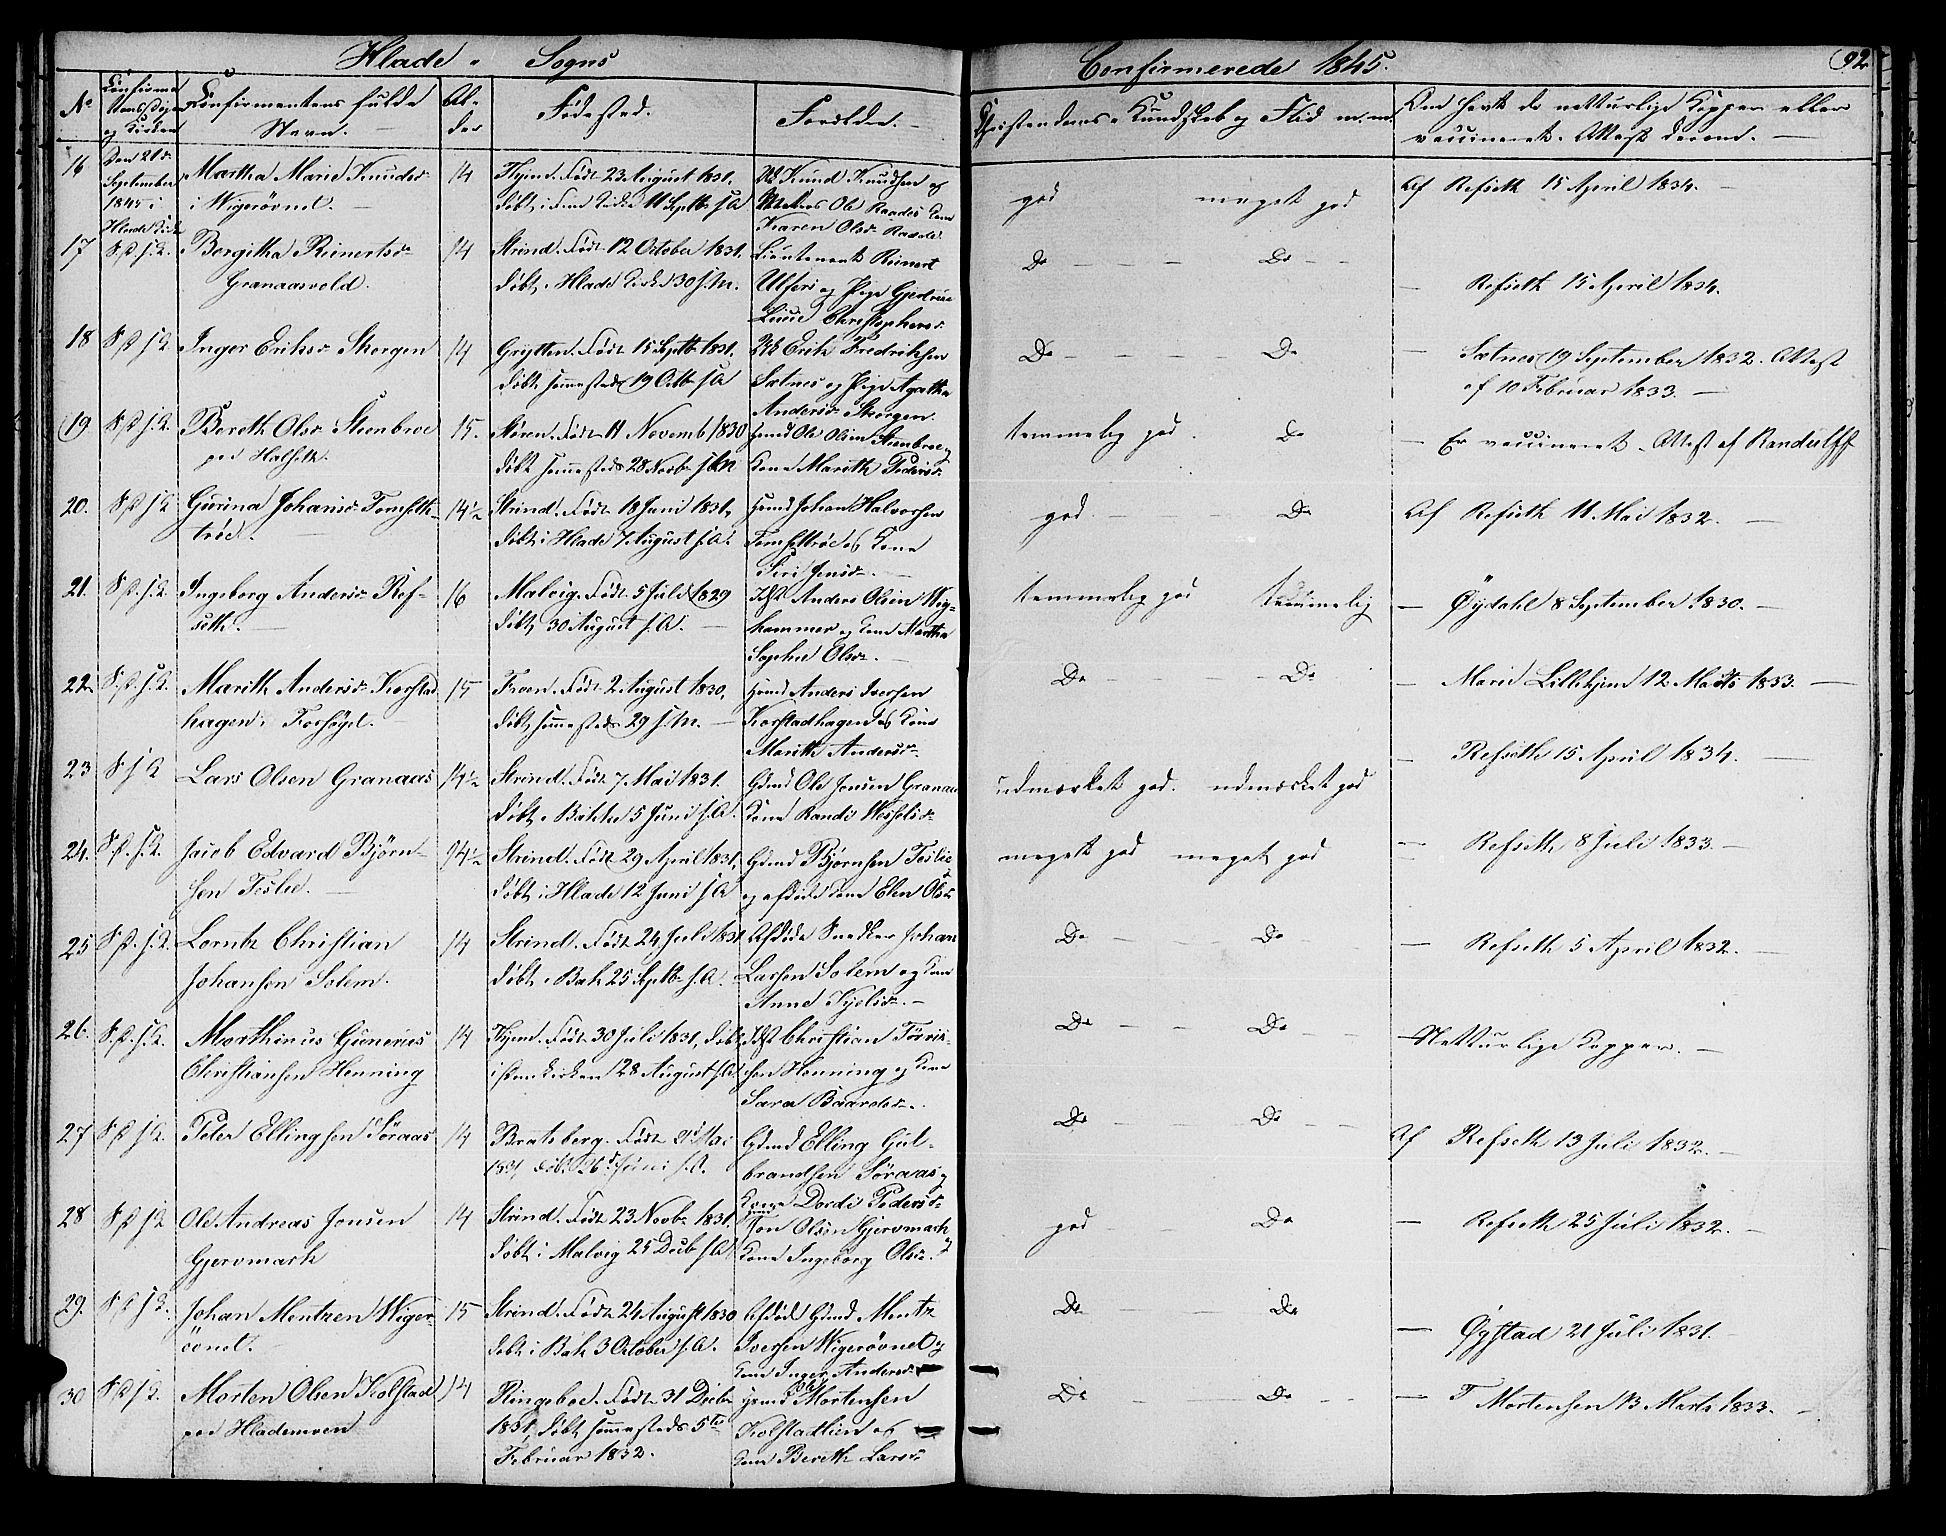 Hlade Sogns
Confirmerede 1845.
92
No
Confirma-
tionsdagen
og Kirken
Confirmentens fulde
Navn.
Al-
der
Fødested.
Forældre.
Christendoms-Kundskab og Flid m.m.
Om havt de naturlige Kopper eller
vaccineret. Attest derom.
16
Den 21de
September
1845 i
Hlade Kirke
Martha Marie Knudsd
i Wigerøvnet.
14
Født 23 August 1831.
døbt i 11 Septbr s. A
Knud Knudsen og
Karen Olsd
god
meget god
Af Refseth 15 April 1834.
17
S. D. s. K.
Bergitha Reinertsd
Granaasvold.
14
Strind. Født 12 October 1831.
døbt i Hlade Kirke 30 s. M.
Lieutenant Reinert
Ulfers og Pige Gjertrue
Christophersd
Do
Do
Refseth 15 April 1834.
18
S. D. s. K.
Inger Eriksd Skorgen
14
Grytten. Født 15 Septbr 1831.
døbt sammesteds 19 Octbr s. A
Erik Fredriksen
Sætnes og Pige Agatha
Andersd Skorgen.
Do
Do
Sætnes 19 September 1832. Attest
af 10 Februar 1833.
19
S. D. s. K.
Bereth Olsd Steenbroe
paa Halseth
15.
Støren. Født 11 Novemb 1830
døbt sammesteds 28 Novbr s. A
Huusmd Ole Olsen Steenbroe og
Kone Marith Pedersd
temmelig god.
Do
Er vaccineret. Attest af Randulff
20.
S. D. s. K
Gurina Johansd Tomseth-
trød.
14½
Strind. Født 18 Juni 1831,
døbt i Hlade 7 August s. A.
Huusmd Johan Halvorsen
Tomsethtrød og Kone
Siri Jensd.
god.
Do
Af Refseth 11 Mai 1832.
21.
S. D. s. K.
Ingeborg Andersd Ref-
seth.
16
Malvig. Født 5 Juli 1829
døbt 30 August s. A.
Anders Olsen Wig-
hammer og Kone Martha
Sophie Olsd.
temmelig god
temmelig
Øydahl 8 September 1830.
22.
S. D. s. K.
Marith Andersd Korstad
hagen, Forsøget.
15
Froen. Født 2 August 1830,
døbt sammesteds 29 s. M.
Huusmd Anders Iversen
Korstadhagen og Kone
Marith Andersd.
Do
Do
Marie Lillehjem 12 Marts 1833.
23
S. s. K
Lars Olsen Granaas
14½
Strind. Født 7 Mai 1831.
døbt i Bakke 5 Juni s. A.
Gdmd Ole Jensen Granaas
Kone Randi
udmærket god.
udmærket god
Refseth 15 April 1834.
24.
S. D. s. K.
Jacob Edvard Bjørn-
sen Teslie.
14½
Strind. Født 29 April 1831,
døbt i Hlade 12 Juni s. A
Gdmd Bjørnsen Teslie
og afdøde Kone Elen Olsd
meget god
meget god
Refseth 8 Juli 1833.
25
S. D. s. K.
Lorntz Christian
Johansen Solem.
14
Strind. Født 24 Juli 1831
døbt i Bak 25 Septbr s. A.
Afdøde Snedker Johan
Larsen Solem og Kone
Anne Kjelsd.
Do
Do
Refseth 5 April 1832.
26.
S. D. s. K.
Marthinus Gunerius
Christiansen Henning
14
Født 30 Juli 1831, døbt
i Kirken 28 August s. A
Christian
sen Henning og Kone
Sara Baardsd.
Do
Do
Natturlige Kopper.
27
S. D. s. K.
Peter Ellingsen Søraas
14
Bratsberg. Født Mai
1831 døbt 26de Juni s. A.
Gdmd Elling Gul-
brandsen Søraas og
Kone Dordi Pedersd.
Do
Do
Af Refseth 13 Juli 1832.
28
S. D. s. K
Ole Andreas Jonsen
Gjervmark
14
Strind. Født 23 Novbr 1831.
døbt i Malvig 25 Decbr s. A
Jon Olsen Gjervmark og
Kone Ingeborg Olsd.
god
Do
Refseth 25 Juli 1832.
29.
S. D. s. K.
Johan Mentzen Wiger-
övnet.
15
Strind. Født 24 August 1830
døbt i Bak 3 October s. A.
Afdød Gdmd Mentz
Iversen Wigerøvnet og
Kone Inger Andersd
Do
Do
Øgstad 21 Juli 1831.
30
S. D. s. K.
Morten Olsen Kolstad
paa Hlademoen
14
Ringeboe. Født 31 Decbr
1831, døbt sammesteds 5te
Februar 1832.
Huusmd Ole Mortensen
Kolstadlien og
Kone Bereth Larsd
Do
Do
T Mortensen 13 Marts 1833.